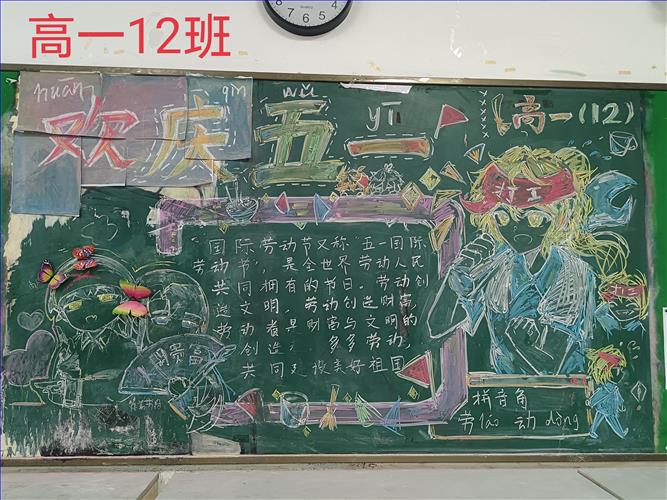 高一12班
huān qìn wǔ yī
欢庆五一
高一(12)
打工
"国际劳动节又称"五一国际
劳动节",是全世界劳动人民
共同拥有的节日。劳动创
造文明,劳动创造财富,
劳动者是财富与文明的
创造 多多劳动,
共同建设美好祖国
打工
拼音角
劳láo 动dòng